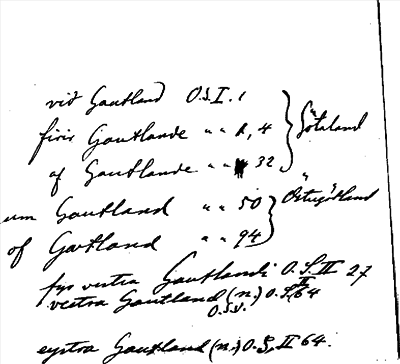 við Gautland O.S.I. 1
firir Gautlande " " 1, 4 } Götaland
af Gautlande " " 32
um Gautland " " 50 } Östergötland
of Gautland " " 94
fyr vestra Gautlandi O.S. II 27
vestra Gautland (n.) O.S. II 64
O.S.V.
eystra Gautland (n.) O.S. II 64.